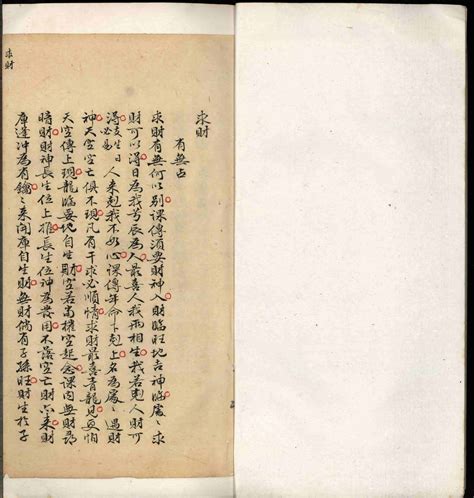 求財
求財
有無占
求財有無何以別課傳須要財神入財臨旺地吉神臨處〻求
財可以得日為我兮辰為人最喜人我兩相生我若剋人財可
得支生日必易人來剋我不如心課傳年命下剋上名為處〻遇財
神天空空亡俱不現凡有干求必順情求財最喜青龍見更怕
天空傳上現龍臨要地自生財空若當權空起念課內無財尋
暗財財神長生位上推長生位神為用不落空亡財亦來財
庫逢冲為有鑰〻來開庫自生財無財倘有子孫旺財生於子